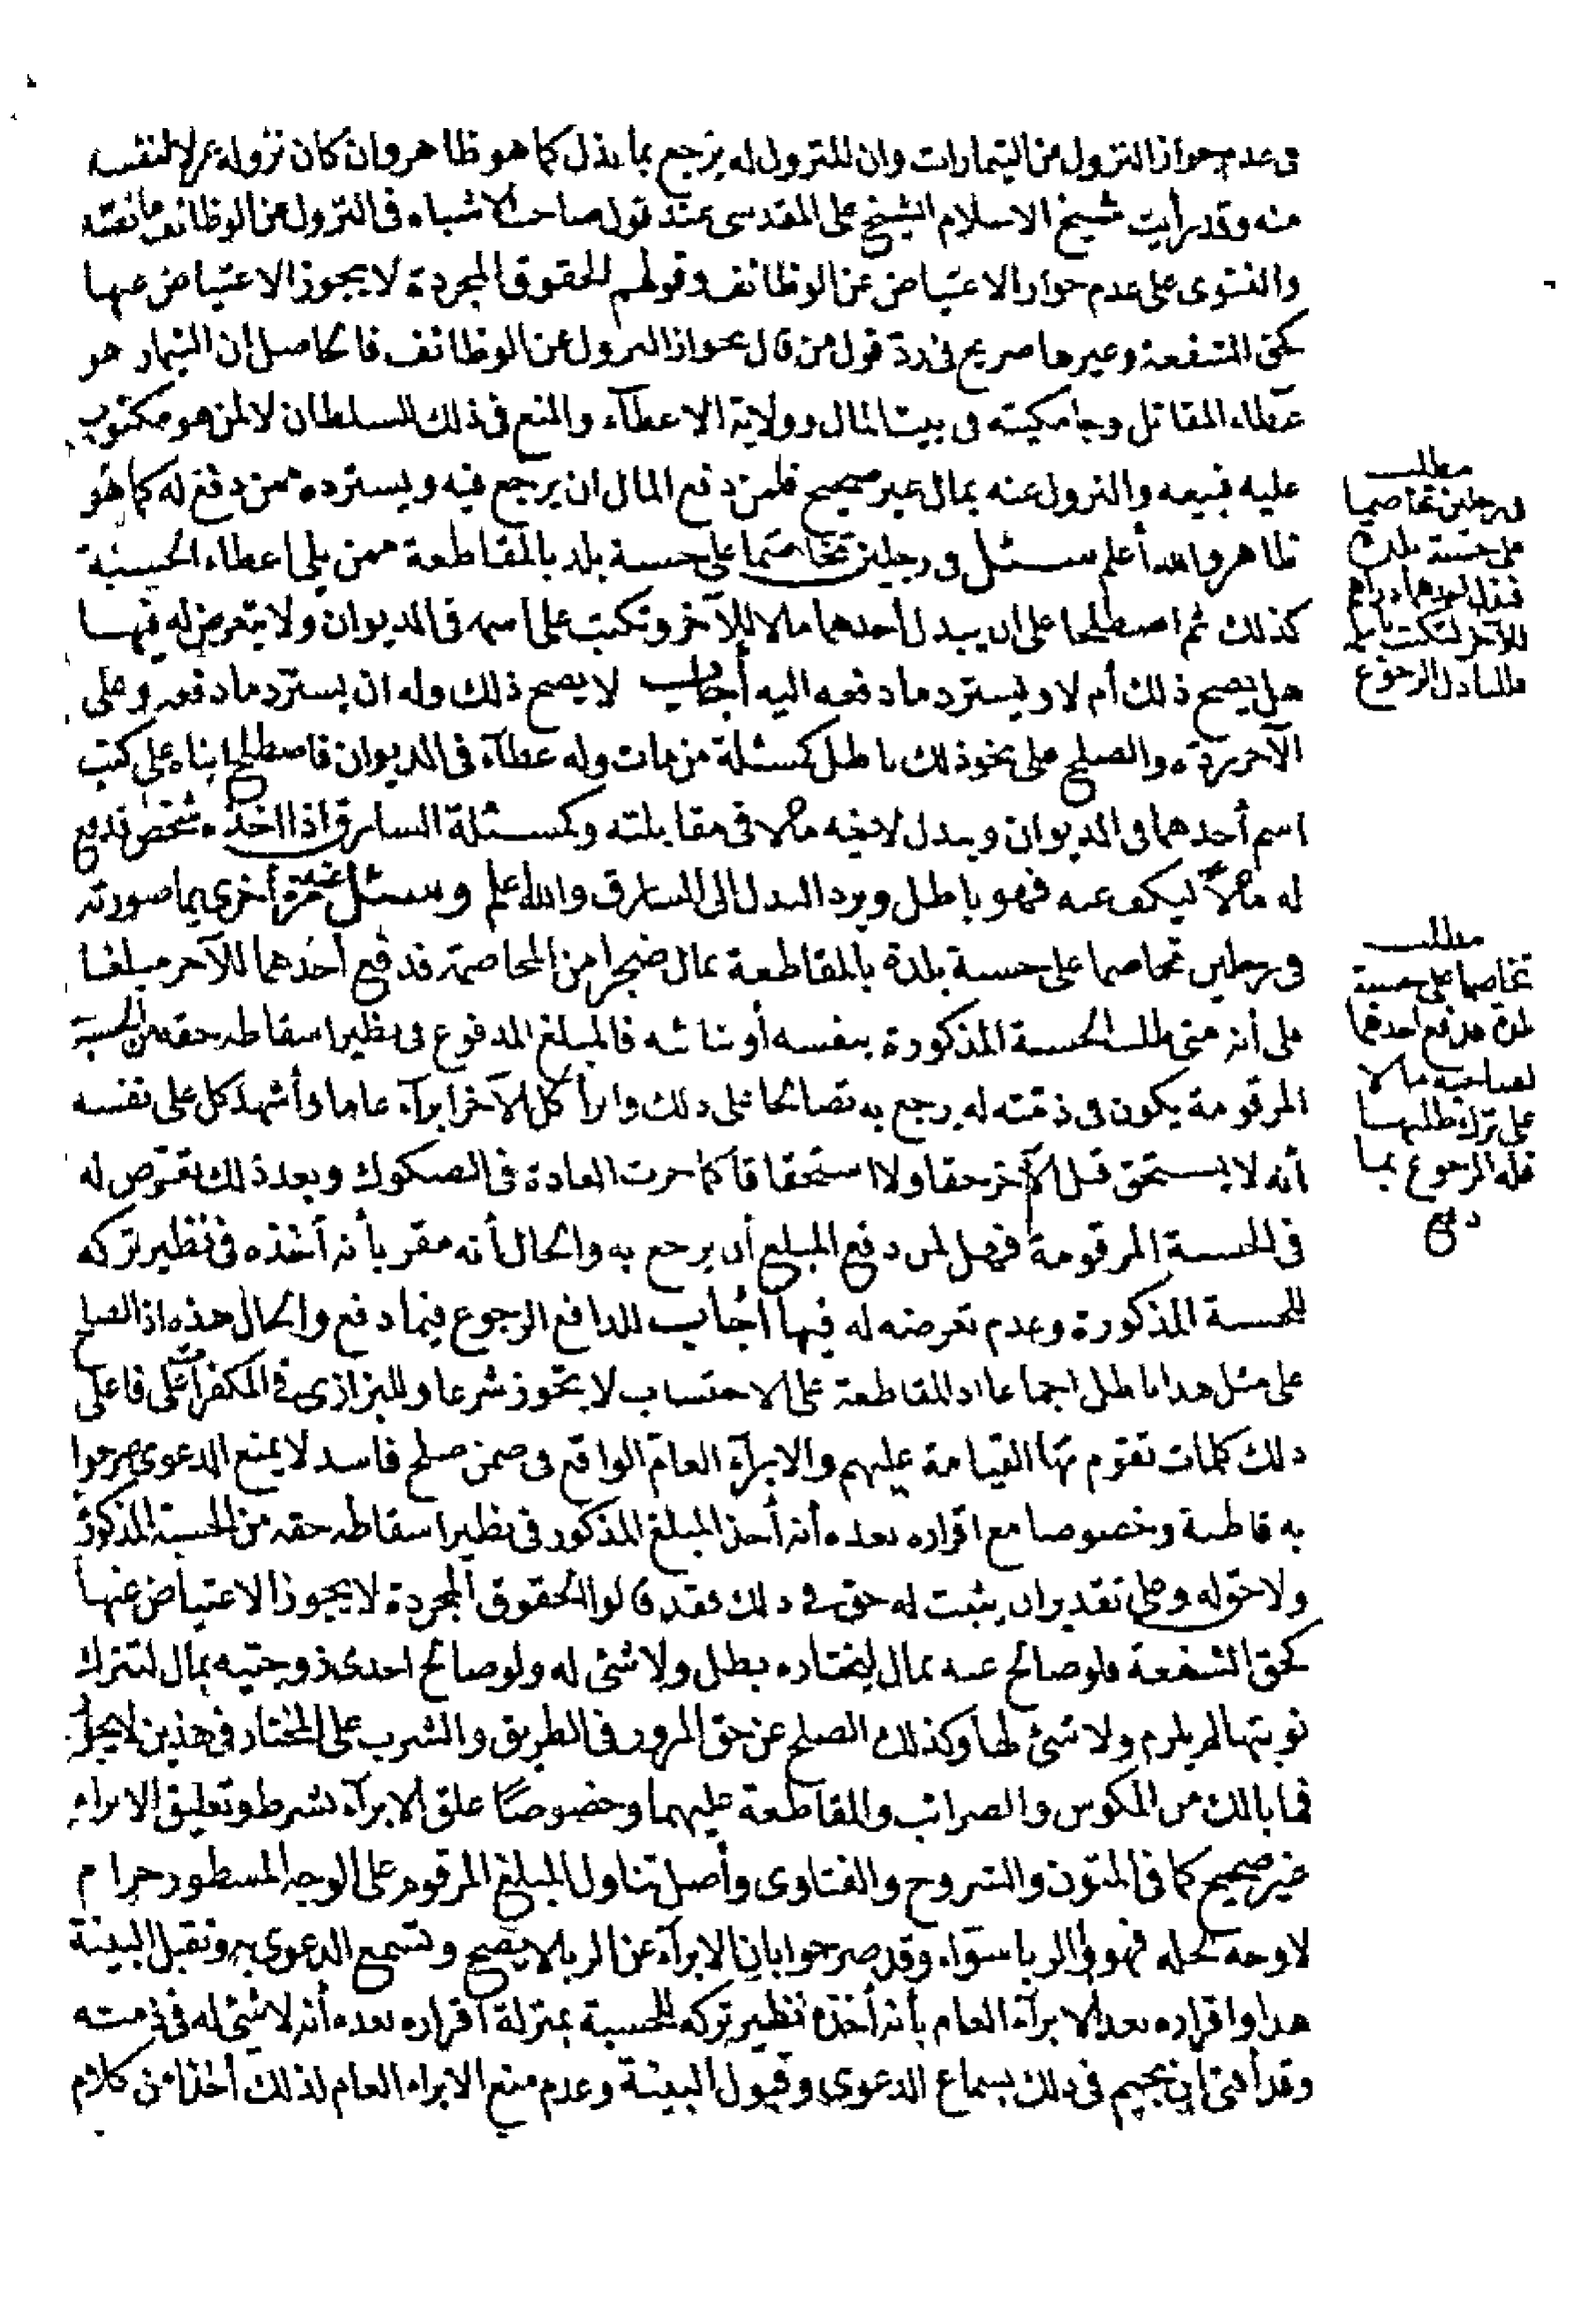 فى عدم جواز النزول عن التيمارات وان للمنزول له يرجع بما بذل كما هو ظاهر وان كان نزوله عزلا لنفسه
منه وقد رأيت شيخ الاسلام الشيخ على المقدسى عند قول صاحب الاشباه فى النزول عن الوظائف ما نصه
والفتوى على عدم جواز الاعتياض عن الوظائف وقولهم الحقوق المجردة لا يجوز الاعتياض عنها
كحق الشفعة وغيرها صريح فى رد قول من قال بجواز النزول عن الوظائف فالحاصل ان التيمار هو
عطاء المقاتل وجامكيته فى بيت المال وولاية الاعطآء والمنع فى ذلك للسلطان لا لمن هو مكتوب
عليه فبيعه والنزول عنه بمال غير صحيح فلمن دفع المال ان يرجع فيه ويسترده ممن دفع له كما هو
ظاهر والله أعلم سئل فى رجلين تخاصما على حسبة بلد بالمقاطعة ممن يلى اعطاء الحسبة
كذلك ثم اصطلحا على ان يبدل أحدهما مالا للآخر وتكتب على اسمه فى الديوان ولا يتعرض له فيها
هل يصح ذلك أم لا ويسترد ما دفعه اليه أجاب لا يصح ذلك وله ان يسترد ما دفعه وعلى
الآخر رده والصلح على نحو ذلك باطل كمسئلة من مات وله عطآء فى الديوان فاصطلحا بناء على كتب
اسم أحدهما فى الديوان ويبدل لاخيه مالا فى مقابلته وكمسئلة السارق اذا أخذه شخص فدفع
له مالا ليكف عنه فهو باطل ويرد البدل الى السارق والله أعلم وسئل عنه مرة أخرى بما صورته
فى رجلين تخاصما على حسبة بلدة بالمقاطعة بمال ضجرا من المخاصمة فدفع أحدهما للآخر مبلغا
على أنه متى طلب الحسبة المذكورة بنفسه أو بنائبه فالمبلغ المدفوع فى نظير اسقاطه حقه من الحسبة
المرقومة يكون فى ذمته له يرجع به تصالحا على ذلك وابرأ كل الآخر ابرآء عاما وأشهد كل على نفسه
أنه لا يستحق قبل الآخر حقا ولا استحقاقا كما جرت العادة فى الصكوك وبعد ذلك تعرض له
فى الحسبة المرقومة فهل لمن دفع المبلغ أن يرجع به والحال أنه مقر بأنه أخذه فى نظير تركه
للحسبة المذكورة وعدم تعرضه له فيها أجاب للدافع الرجوع فيما دفع والحال هذه اذ الصلح
على مثل هذا باطل اجماعا اذ المقاطعة على الاحتساب لا تجوز شرعا وللبزازى فى المكفرات على فاعلى
ذلك كلمات تقوم بها القيامة عليهم والابرآء العام الواقع فى ضمن صلح فاسد لا يمنع الدعوى صرحوا
به قاطبة وخصوصا مع اقراره بعده أنه أخذ المبلغ المذكور فى نظير اسقاطه حقه من الحسبة المذكورة
ولا حق له وعلى تقدير ان يثبت له حق فى ذلك فقد قالوا الحقوق المجردة لا يجوز الاعتياض عنها
كحق الشفعة فلو صالح عنه بمال ليختاره بطل ولا شئ له ولو صالح احدى زوجتيه بمال لتترك
نوبتها لم يلزم ولا شئ لها وكذلك الصلح عن حق المرور فى الطريق والشرب على المختار فى هذين لا يجوز
فما بالك من المكوس والضرائب والمقاطعة عليهما وخصوصا علق الابرآء بشرط وتعليق الابراء
غير صحيح كما فى المتون والشروح والفتاوى وأصل تناول المبلغ المرقوم على الوجه المسطور حرام
لا وجه لحله فهو والربا سوآء وقد صرحوا بان الابرآء عن الربا لا يصح وتسمع الدعوى به وتقبل البينة
هذا واقراره بعد الابرآء العام بأنه أخذه نظير تركه للحسبة بمنزلة اقراره بعده أنه لا شئ له فى ذمته
وقد أفتى ابن نجيم فى ذلك بسماع الدعوى وقبول البينة وعدم منع الابراء العام لذلك أخذا من كلام
مطلب
فى رجلين تخاصما
على حسبة بلدة
فبذل أحدهما دراهم
للآخر لتكتب باسمه
فللباذل الرجوع
مطلب
تخاصما على حسبة
بلدة فدفع أحدهما
لصاحبه مالا
على ترك طلبها
فله الرجوع بما
دفع